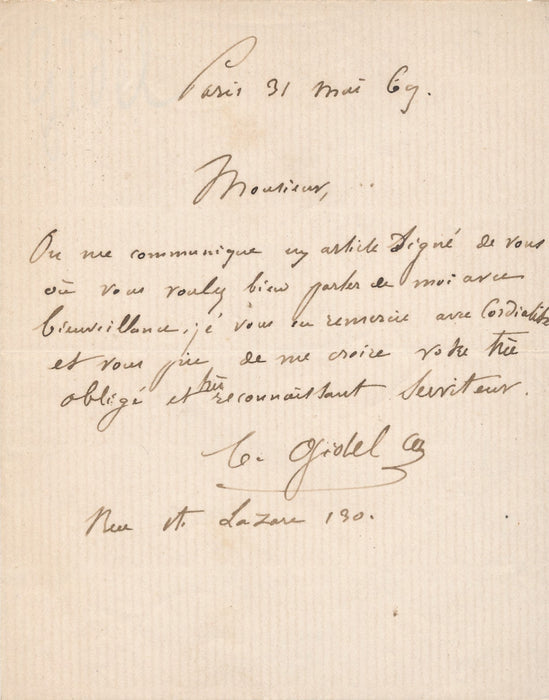 Paris 31 mai 69.
Monsieur,
On me communique un article signé de vous
où vous voulez bien parler de moi avec
bienveillance, je vous en remercie avec Cordialité
et vous prie de me croire votre très
obligé et très reconnaissant Serviteur.
C. Gidel
Rue St. Lazare 130.